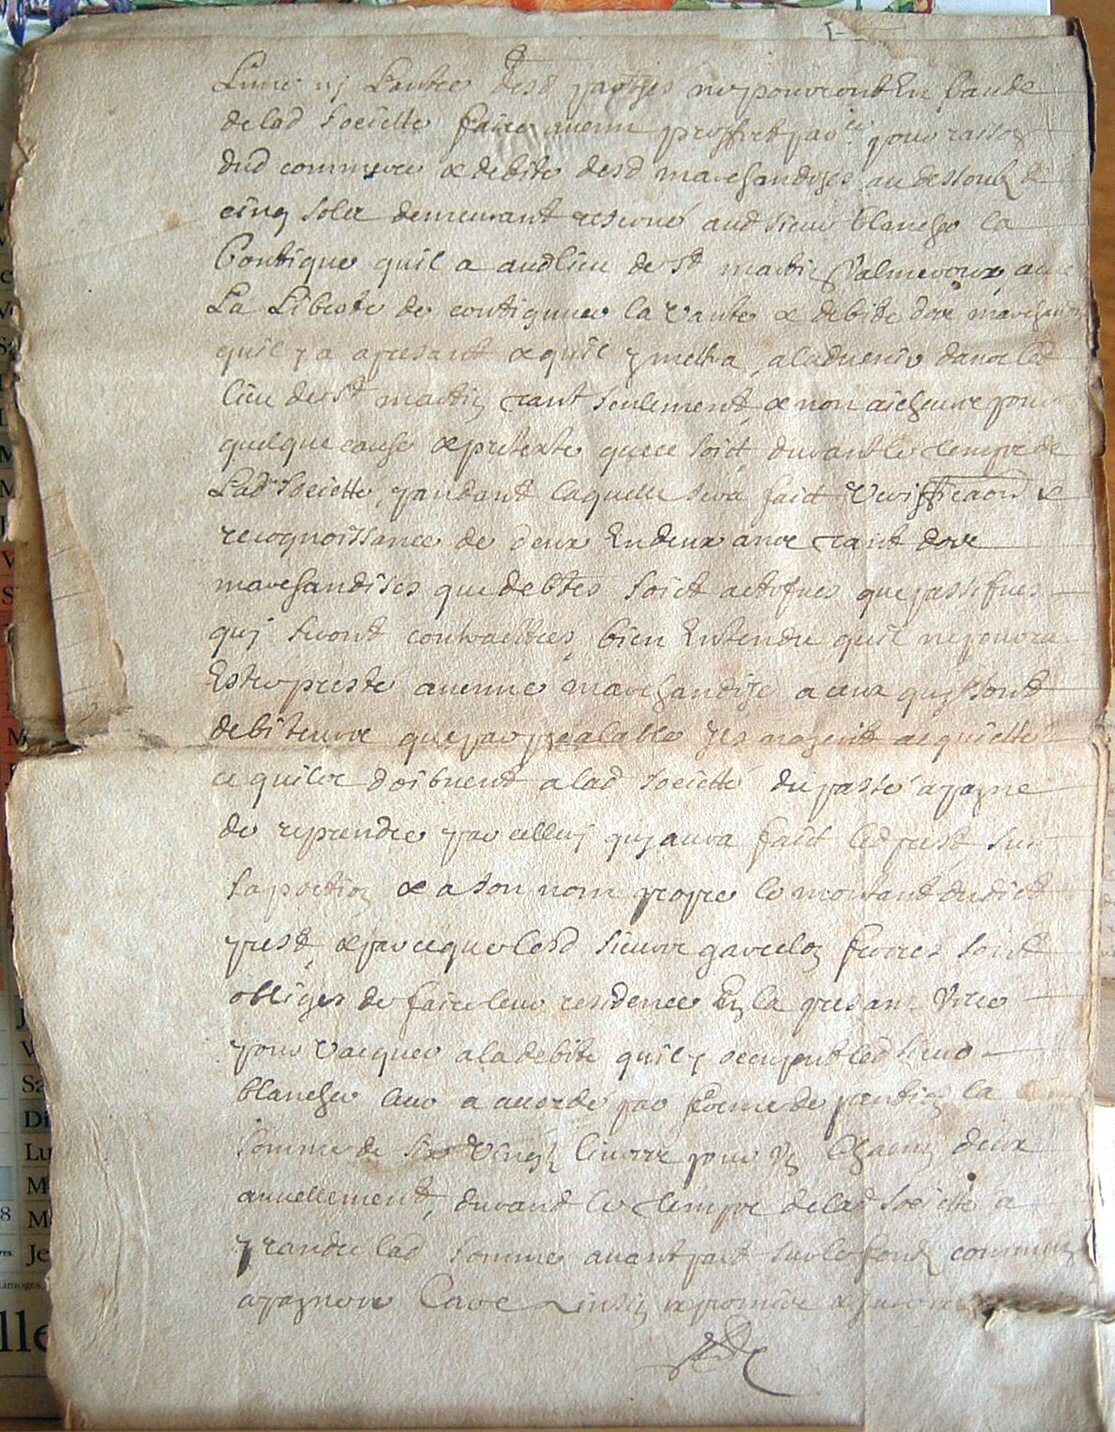 L'une ny L'autre desd parties ne pouvront En fande
de lad societte faire aucun proffict par pour raison
dud commerce & debite desd marchandizes au dessoubz de
cinq solz demeurant reservé aud sieur blancher la
Boutique quil a aud lieu de St martin Valmeroux avec
La Liberte de continuer la vante & debite des marchandi
quil y a apresant & quil y mettra a ladvenir dans led
lieu de St martin tant seulement & non ailheurs pour
quelque cause & pretexte que ce soict durant le temps de
Lad societte, pandant laquelle sera faict veriffication &
recognoissance de deux En deux ans tant des
marchandises que debtes soict actifves que passifves
quj seront contractees, bien Entendu quil ne pouvra
Estre preste aucune marchandize a ceux quy sont
debiteurs que par prealable Ils nayent acquicté
ce quils doibvent a lad societté du passé a payne
de reprendre par celluy quj aura faict led prest sur
sa portion & a son nom propre le montant dudict
prest, & parce que lesd sieurs garcelon freres sont
obliges de faire leur residence En la presan. Ville
pour vacquer a la debite quil y occupent led sieur
blancher leur a accordé par forme de pention la
somme de six vingt livres pour Un Chacun deux
annuellement, durand le temps de lad societte a
prandre lad somme avant part sur le fondz commun
a payne &c Car Ainsin & promire &